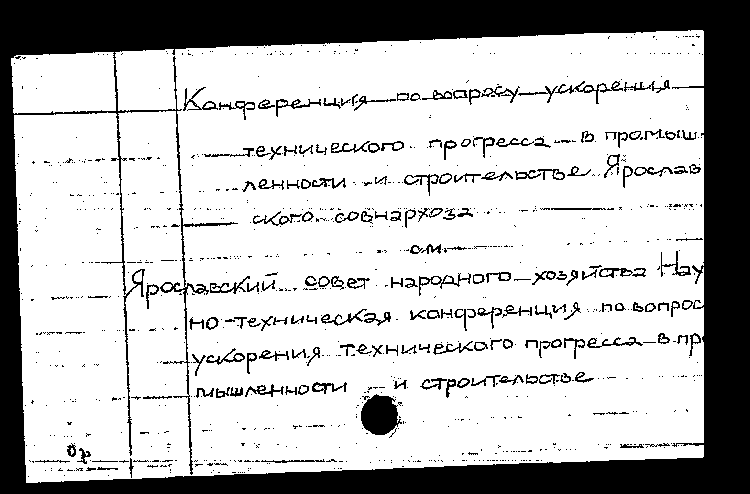 Конференция по вопросу ускорения
технического прогресса в промыш-
ленности и строительстве Ярослав
ского совнархоза
см.
Ярославский совет народного хозяйства Нау
но-техническая конференция по вопрос
ускорения технического прогресса в пр
мышленности и строительстве